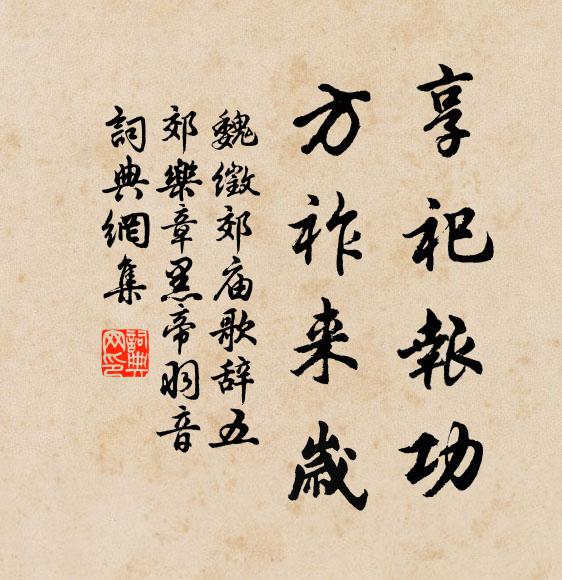 享祀報功
方祚来歲
魏徵郊庙歌辞五
郊樂章黑帝羽音
詞典網集
詞典網印